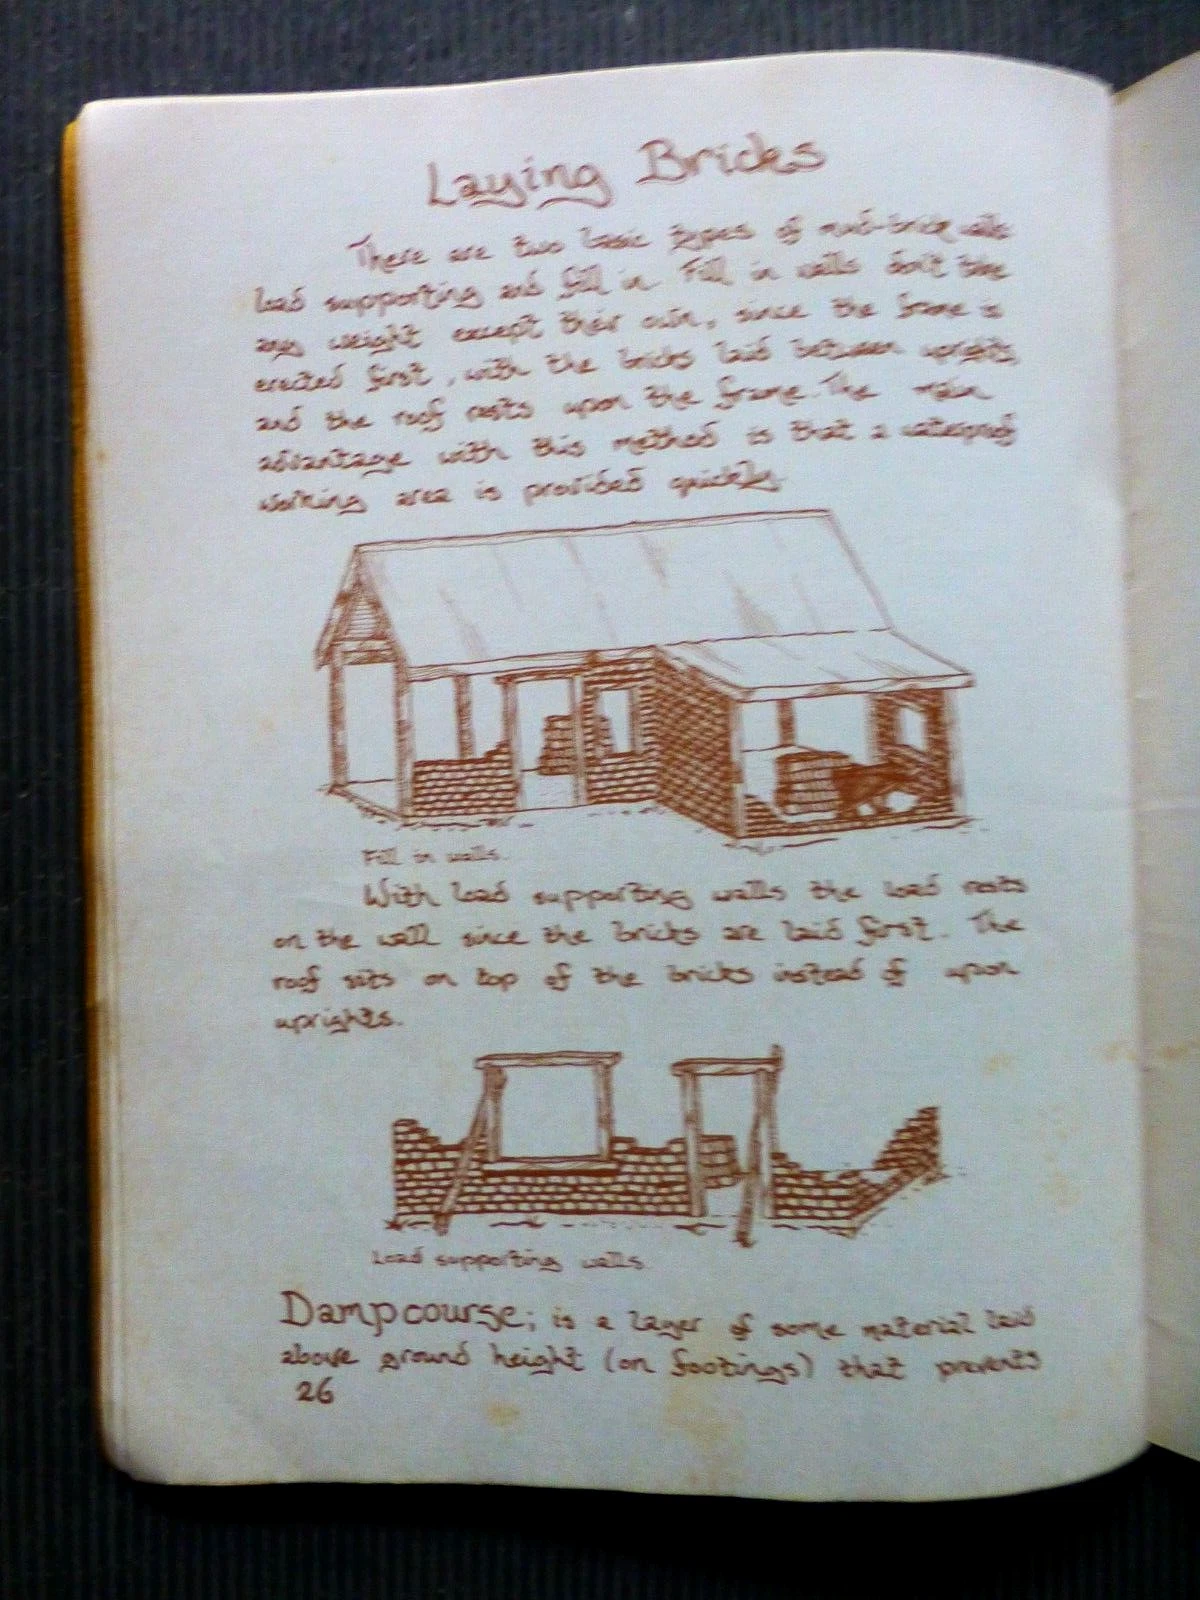 Laying Bricks
There are two basic types of mud-brick walls
load supporting and fill in. Fill in walls don't take
any weight except their own, since the frame is
erected first, with the bricks laid between uprights,
and the roof rests upon the frame. The main
advantage with this method is that a waterproof
working area is provided quickly.
Fill in walls.
With load supporting walls the load rests
on the wall since the bricks are laid first. The
roof sits on top of the bricks instead of upon
uprights.
Load supporting walls.
Dampcourse; is a layer of some material laid
above ground height (on footings) that prevents
26